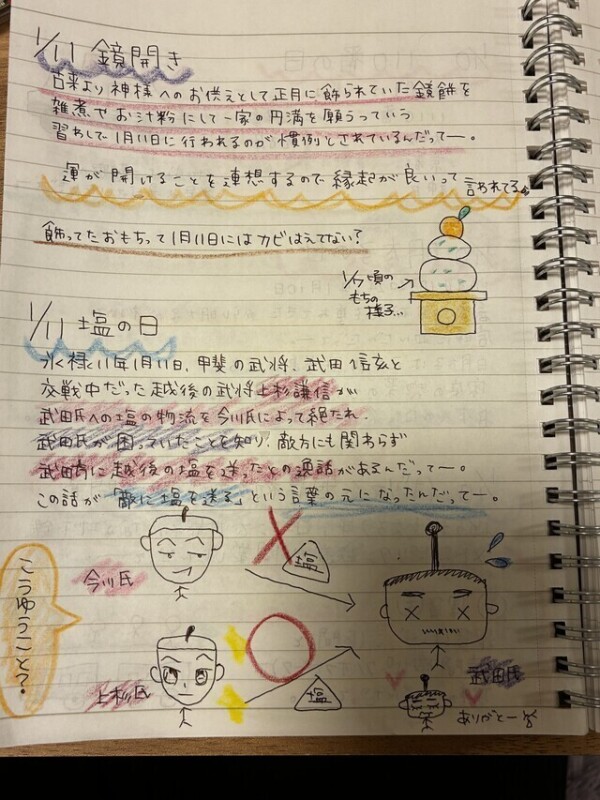 1/11 鏡開き
古来より神様へのお供えとして正月に飾られていた鏡餅を
雑煮やお汁粉にして一家の円満を願うっていう
習わしで1月11日に行われるのが慣例とされているんだってー。
運が開けることを連想するので縁起が良いって言われてる
飾ってたおもちって1月11日にはカビはえてない?
1/7頃の
もちの
様子…
1/11 塩の日
永禄11年1月11日、甲斐の武将、武田信玄と
交戦中だった越後の武将上杉謙信が
武田氏への塩の物流を今川氏によって絶たれ、
武田氏が困っていたことを知り、敵方にも関わらず
武田方に越後の塩を送ったとの逸話があるんだってー。
この話が「敵に塩を送る」という言葉の元になったんだってー。
こうゆうこと?
今川氏
塩
上杉氏
塩
武田氏
ありがとー